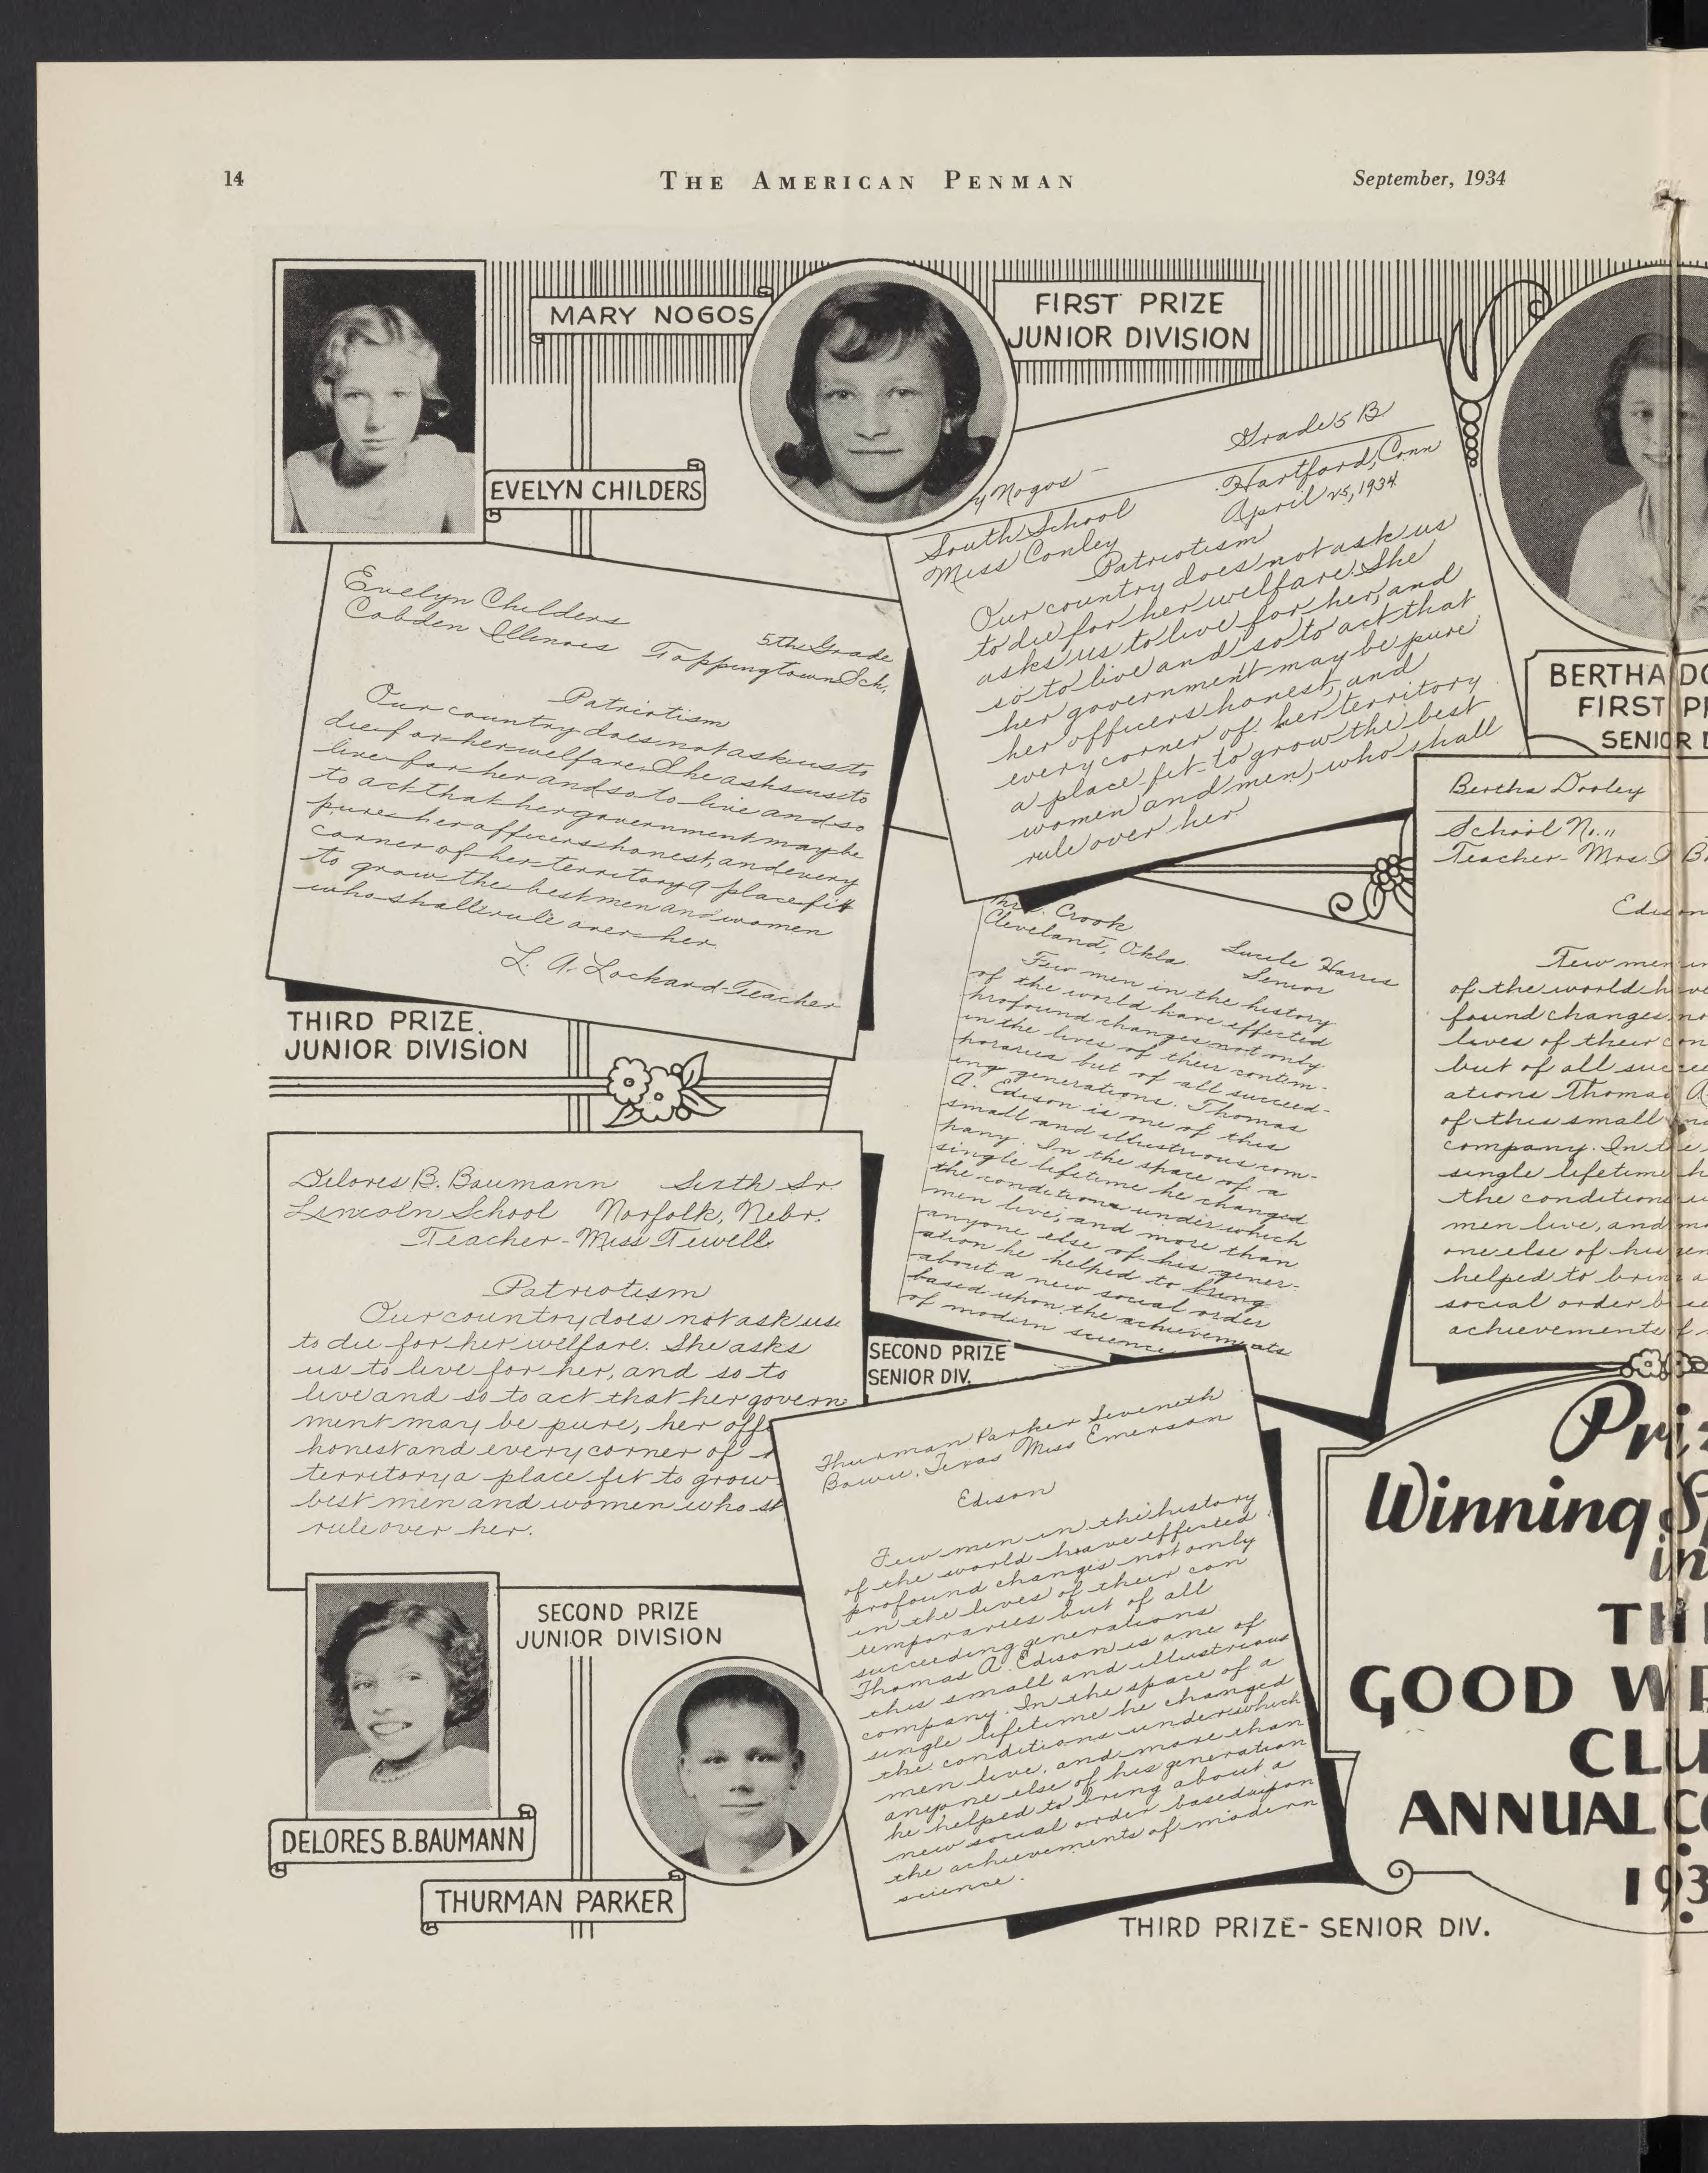 14
THE AMERICAN PENMAN
September, 1934
MARY NOGOS
FIRST PRIZE
JUNIOR DIVISION
EVELYN CHILDERS
y Nogos
Grade 5 B
South School
Hartford, Conn
Miss Conley
April 25, 1934
Patriotism
Our country does not ask us
to die for her welfare. She
asks us to live for her, and
so to live and so to act that
her government may be pure
her officers honest, and
every corner of her territory
a place fit to grow the best
women and men, who shall
rule over her.
Evelyn Childers
5th Grade
Cobden Illinois Toppingtown Sch.
Patriotism
Our country does not ask us to
die for her welfare. She asks us to
live for her and so to live and so
to act that her government may be
pure her officers honest, and every
corner of her territory a place fit
to grow the best men and women
who shall rule over her
L. A. Lockard-Teacher
THIRD PRIZE.
JUNIOR DIVISION
Mrs. Crook
Cleveland, Okla. Lucile Harris
Senior
Few men in the history
of the world have effected
profound changes not only
in the lives of their contem-
poraries but of all succeed-
ing generations. Thomas
A. Edison is one of this
small and illustrious com-
pany. In the space of a
single lifetime he changed
the conditions under which
men live, and more than
anyone else of his gener-
ation he helped to bring
about a new social order
based upon the achievements
of modern science
SECOND PRIZE
SENIOR DIV.
BERTHA DO
FIRST P
SENIOR
Bertha Dooley
School No. 11
Teacher- Mrs.
Edison
Few men in
of the world have
found changes no
lives of their con
but of all succee
ations Thomas A.
of this small
company. In the
single lifetime h
the conditions
men live, and mo
one else of his gen
helped to bring a
social order b
achievements of
Delores B. Baumann Sixth Gr.
Lincoln School Norfolk, Nebr.
Teacher-Miss Tewell
Patriotism
Our country does not ask us
to die for her welfare. She asks
us to live for her, and so to
live and so to act that her govern
ment may be pure, her off
honest and every corner of
territory a place fit to grow
best men and women who sh
rule over her.
SECOND PRIZE
JUNIOR DIVISION
DELORES B. BAUMANN
THURMAN PARKER
Thurman Parker Seveneth
Bowie, Texas Miss Emerson
Edison
Few men in the history
of the world have effected
profound changes not only
in the lives of their con
temporaries but of all
succeeding generations
Thomas A. Edison is one of
this small and illustrious
company. In the space of a
single lifetime he changed
the conditions under which
men live, and more than
anyone else of his generation
he helped to bring about a
new social order based upon
the achievements of modern
science.
THIRD PRIZE- SENIOR DIV.
Priz
Winning Sp
in
TH
GOOD WR
CLU
ANNUAL CO
193